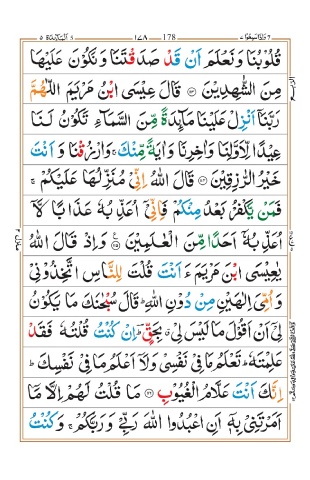 واذا سمعوا ٧ ١٧٨ 178 المآئدة ٥
قُلُوْبُنَا وَنَعْلَمَ اَنْ قَدْ صَدَقْتَنَا وَنَكُوْنَ عَلَيْهَا
مِنَ الشّٰهِدِيْنَ ﴿۱۱۳﴾ قَالَ عِيْسَى ابْنُ مَرْيَمَ اللّٰهُمَّ
رَبَّنَاۤ اَنْزِلْ عَلَيْنَا مَآىِٕدَةً مِّنَ السَّمَآءِ تَكُوْنُ لَنَا
عِيْدًا لِّاَوَّلِنَا وَاٰخِرِنَا وَاٰيَةً مِّنْكَ ۚ وَارْزُقْنَا وَاَنْتَ
خَيْرُ الرّٰزِقِيْنَ ﴿۱۱۴﴾ قَالَ اللّٰهُ اِنِّيْ مُنَزِّلُهَا عَلَيْكُمْ ۚ
فَمَنْ يَّكْفُرْ بَعْدُ مِنْكُمْ فَاِنِّيْۤ اُعَذِّبُهٗ عَذَابًا لَّاۤ
اُعَذِّبُهٗۤ اَحَدًا مِّنَ الْعٰلَمِيْنَ ﴿۱۱۵﴾ وَاِذْ قَالَ اللّٰهُ
يٰعِيْسَى ابْنَ مَرْيَمَ ءَاَنْتَ قُلْتَ لِلنَّاسِ اتَّخِذُوْنِيْ
وَاُمِّيَ اِلٰهَيْنِ مِنْ دُوْنِ اللّٰهِ ؕ قَالَ سُبْحٰنَكَ مَا يَكُوْنُ
لِيْۤ اَنْ اَقُوْلَ مَا لَيْسَ لِيْ ۗ بِحَقٍّ ؕ اِنْ كُنْتُ قُلْتُهٗ فَقَدْ
عَلِمْتَهٗ ؕ تَعْلَمُ مَا فِيْ نَفْسِيْ وَلَاۤ اَعْلَمُ مَا فِيْ نَفْسِكَ ؕ
اِنَّكَ اَنْتَ عَلَّامُ الْغُيُوْبِ ﴿۱۱۶﴾ مَا قُلْتُ لَهُمْ اِلَّا مَاۤ
اَمَرْتَنِيْ بِهٖۤ اَنِ اعْبُدُوا اللّٰهَ رَبِّيْ وَرَبَّكُمْ ۚ وَكُنْتُ